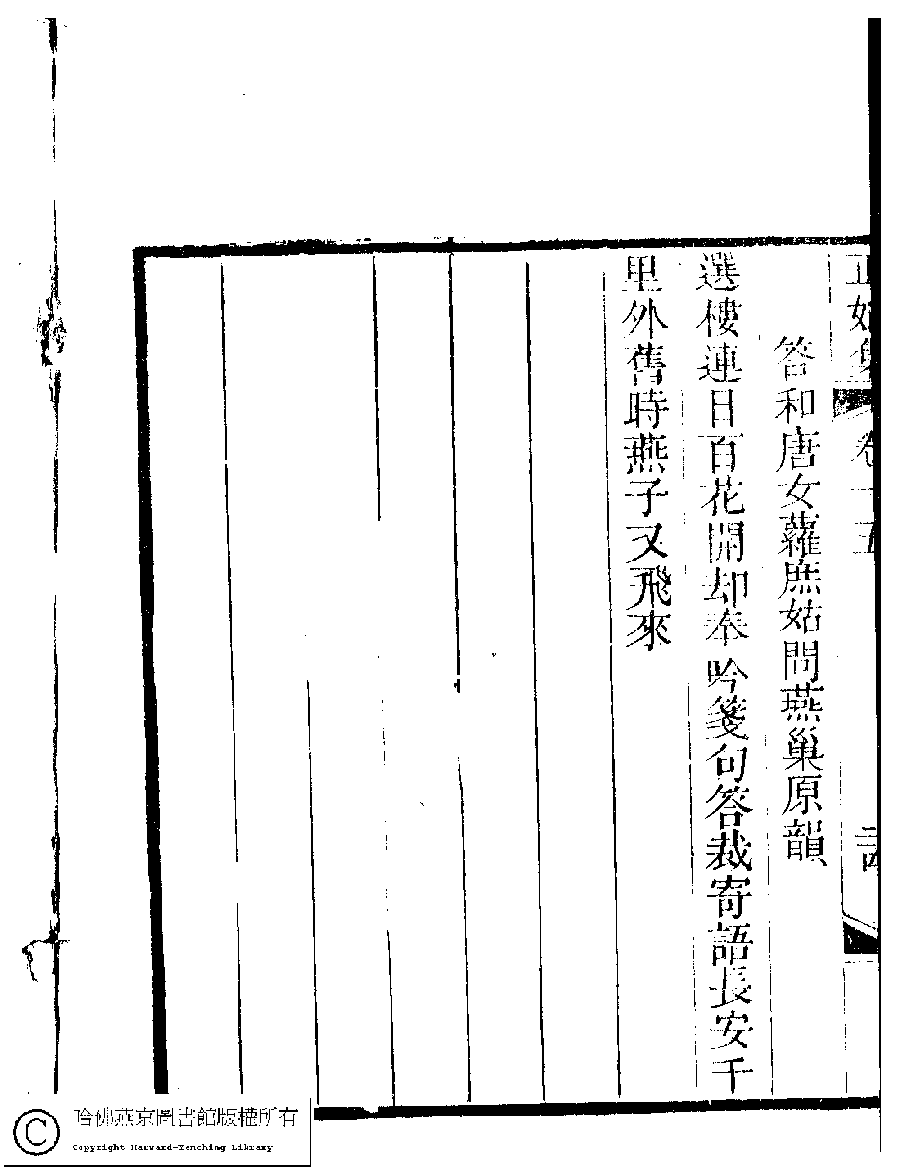 正始集 卷十五
答和唐女蘿庶姑問燕巢原韻
選樓連日百花開却奉吟箋句答裁寄語長安千
里外舊時燕子又飛來
哈佛燕京圖書館版權所有
Copyright Harvard-Yenching Library